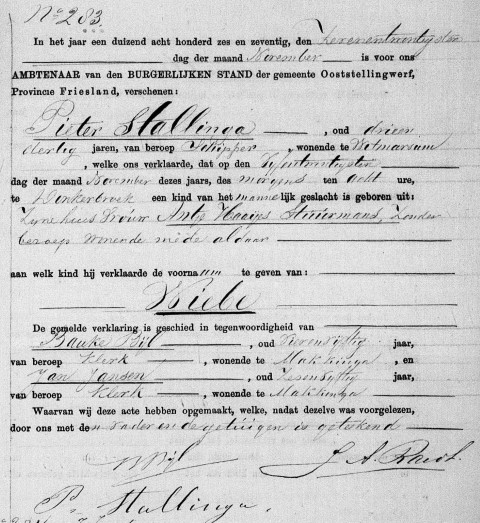 No 283.
In het jaar een duizend acht honderd zes en zeventig, den Zevenentwintigsten
dag der maand November is voor ons
AMBTENAAR van den BURGERLIJKEN STAND der gemeente Ooststellingwerf,
Provincie Friesland, verschenen:
Pieter Stallinga, oud drieen
dertig jaren, van beroep Schipper, wonende te Wolmarsum
, welke ons verklaarde, dat op den Vijfentwintigsten
dag der maand November dezes jaars, des morgens ten acht ure,
te Donkerbroek een kind van het mannelijk geslacht is geboren uit:
Zijne huisvrouw Antje Haaijes Stuurmans, Zonder
beroep wonende mede aldaar
aan welk kind hij verklaarde de voornaam te geven van:
Wiebe
De gemelde verklaring is geschied in tegenwoordigheid van
Bauke Bijl, oud Vierenvijftig jaar,
van beroep Klerk, wonende te Makkinga, en
Jan Jansen, oud Zesenvijftig jaar,
van beroep Klerk, wonende te Makkinga
Waarvan wij deze acte hebben opgemaakt, welke, nadat dezelve was voorgelezen,
door ons met den Vader en de getuigen is geteekend
Bijl
P. Stallinga.